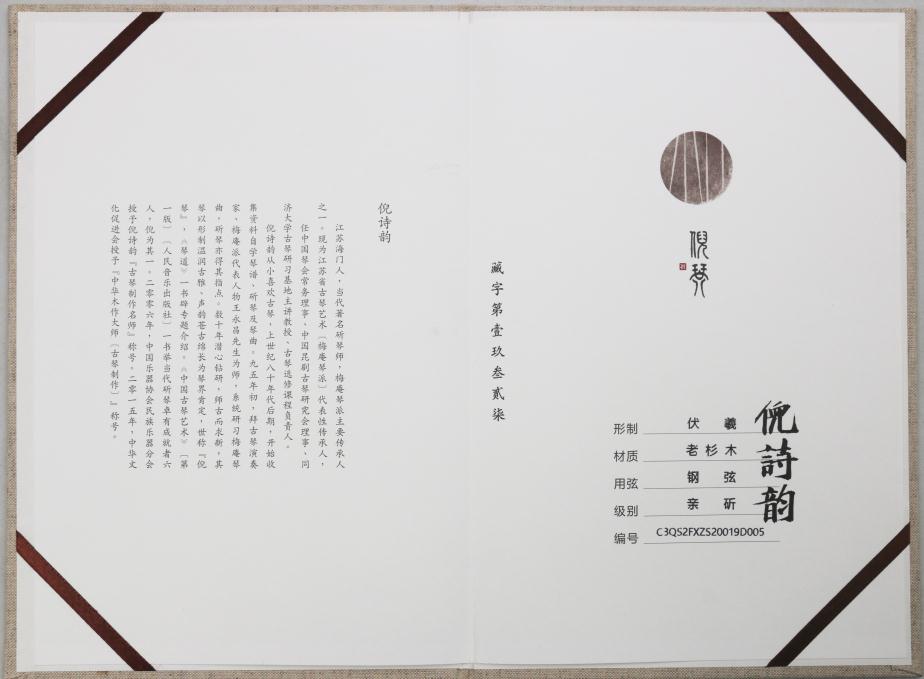 倪诗韵
江苏海门人，当代著名斫琴师，梅庵琴派主要传承人
之一。现为江苏省古琴艺术〔梅庵琴派〕代表性传承人，
任中国琴会常务理事、中国昆剧古琴研究会理事、同
济大学古琴研习基地主讲教授、古琴选修课程负责人。
倪诗韵从小喜欢古琴，上世纪八十年代后期，开始收
集资料自学琴谱、斫琴及琴曲。九五年初，拜古琴演奏
家、梅庵派代表人物王永昌先生为师，系统研习梅庵琴
曲，斫琴亦得其指点。数十年潜心钻研，师古而求新，其
琴以形制温润古雅、声韵苍古绵长为琴界肯定，世称『倪
琴』，《琴道》一书辟专题介绍。《中国古琴艺术》〔第
一版〕〔人民音乐出版社〕一书举当代斫琴卓有成就者六
人，倪为其一。二零零六年，中国乐器协会民族乐器分会
授予倪诗韵『古琴制作名师』称号。二零一五年，中华文
化促进会授予『中华木作大师〔古琴制作〕』称号。
藏字第壹玖叁贰柒
倪琴
形制 伏羲
材质 老杉木
用弦 钢弦
级别 亲斫
编号 C3QS2FXZS20019D005
倪詩韵